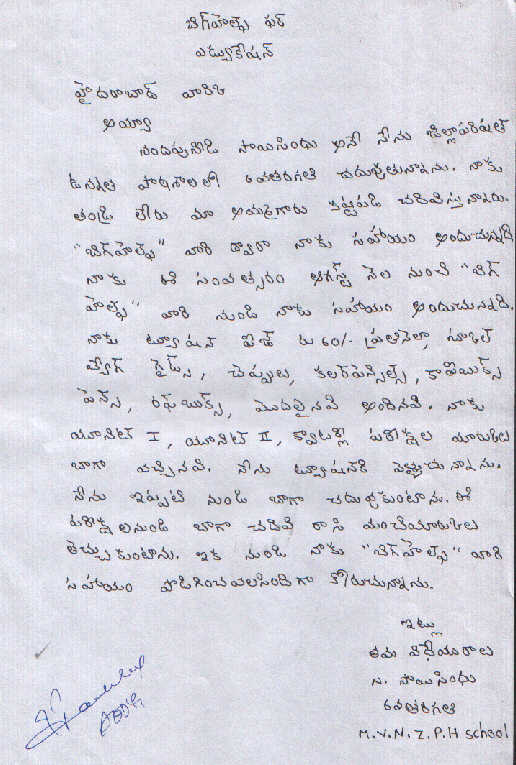 బిగ్‌హెల్ప్ ఫర్
ఎడ్యుకేషన్
హైదరాబాద్ వారికి
అయ్యా
నందవునోడి సాయిసింధు అనే నేను జిల్లాపరిషత్
ఉన్నత పాఠశాలలో 8వతరగతి చదువుతున్నాను. నాకు
తండ్రి లేరు మా అమ్మగారు కష్టపడి చదివిస్తున్నారు.
"బిగ్‌హెల్ప్" వారి ద్వారా నాకు సహాయం అందుచున్నది
నాకు ఈ సంవత్సరం ఆగస్ట్ నెల నుంచి "బిగ్
హెల్ప్" వారి నుండి నాకు సహాయం అందుచున్నది.
నాకు ట్యూషన్ ఫీజ్ రు 60/- ప్రతినెలా, స్కూల్
బ్యాగ్ గైడ్స్, చెప్పులు, కలర్‌పెన్సిల్స్, కాపీబుక్స్
పెన్స్, రఫ్‌బుక్స్, మొదలైనవి అందినవి. నాకు
యూనిట్ I, యూనిట్ II, క్వార్టర్లీ పరీక్షల మార్కులు
బాగా వచ్చినవి. నేను ట్యూషన్‌కి వెళ్ళుచున్నాను.
నేను ఇప్పటి నుండి బాగా చదువుకుంటాను. ఈ
పరీక్షలనుండి బాగా చదివి రాసి మంచిమార్కులు
తెచ్చుకుంటాను. ఇక నుండి నాకు "బిగ్‌హెల్ప్" వారి
సహాయం పొడిగించవలసిందిగా కోరుచున్నాను.
ఇట్లు
తమ విధేయురాలు
న. సాయిసింధు
8వతరగతి
M.V.N.Z.P.H school